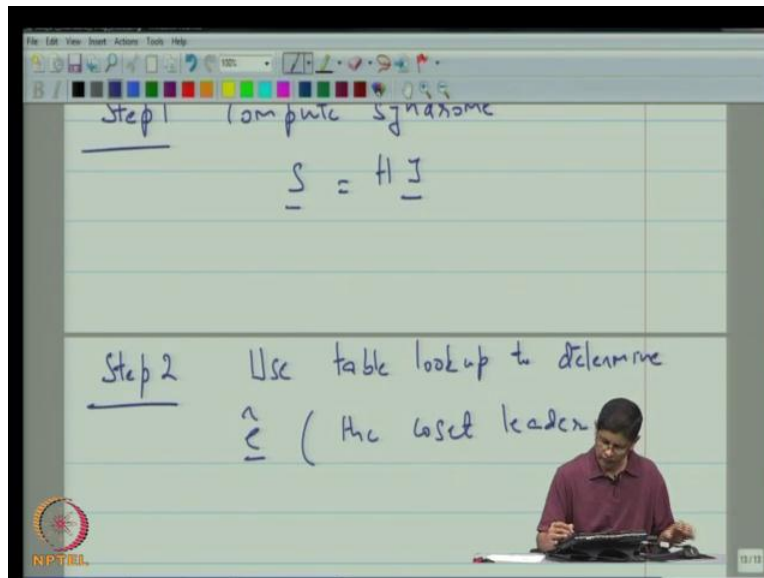 File Edit View Insert Actions Tools Help
100%
B I
Step 1 Compute Syndrome
S = H y
Step 2 Use table lookup to determine
ê ( the coset leader
NPTEL
13/13